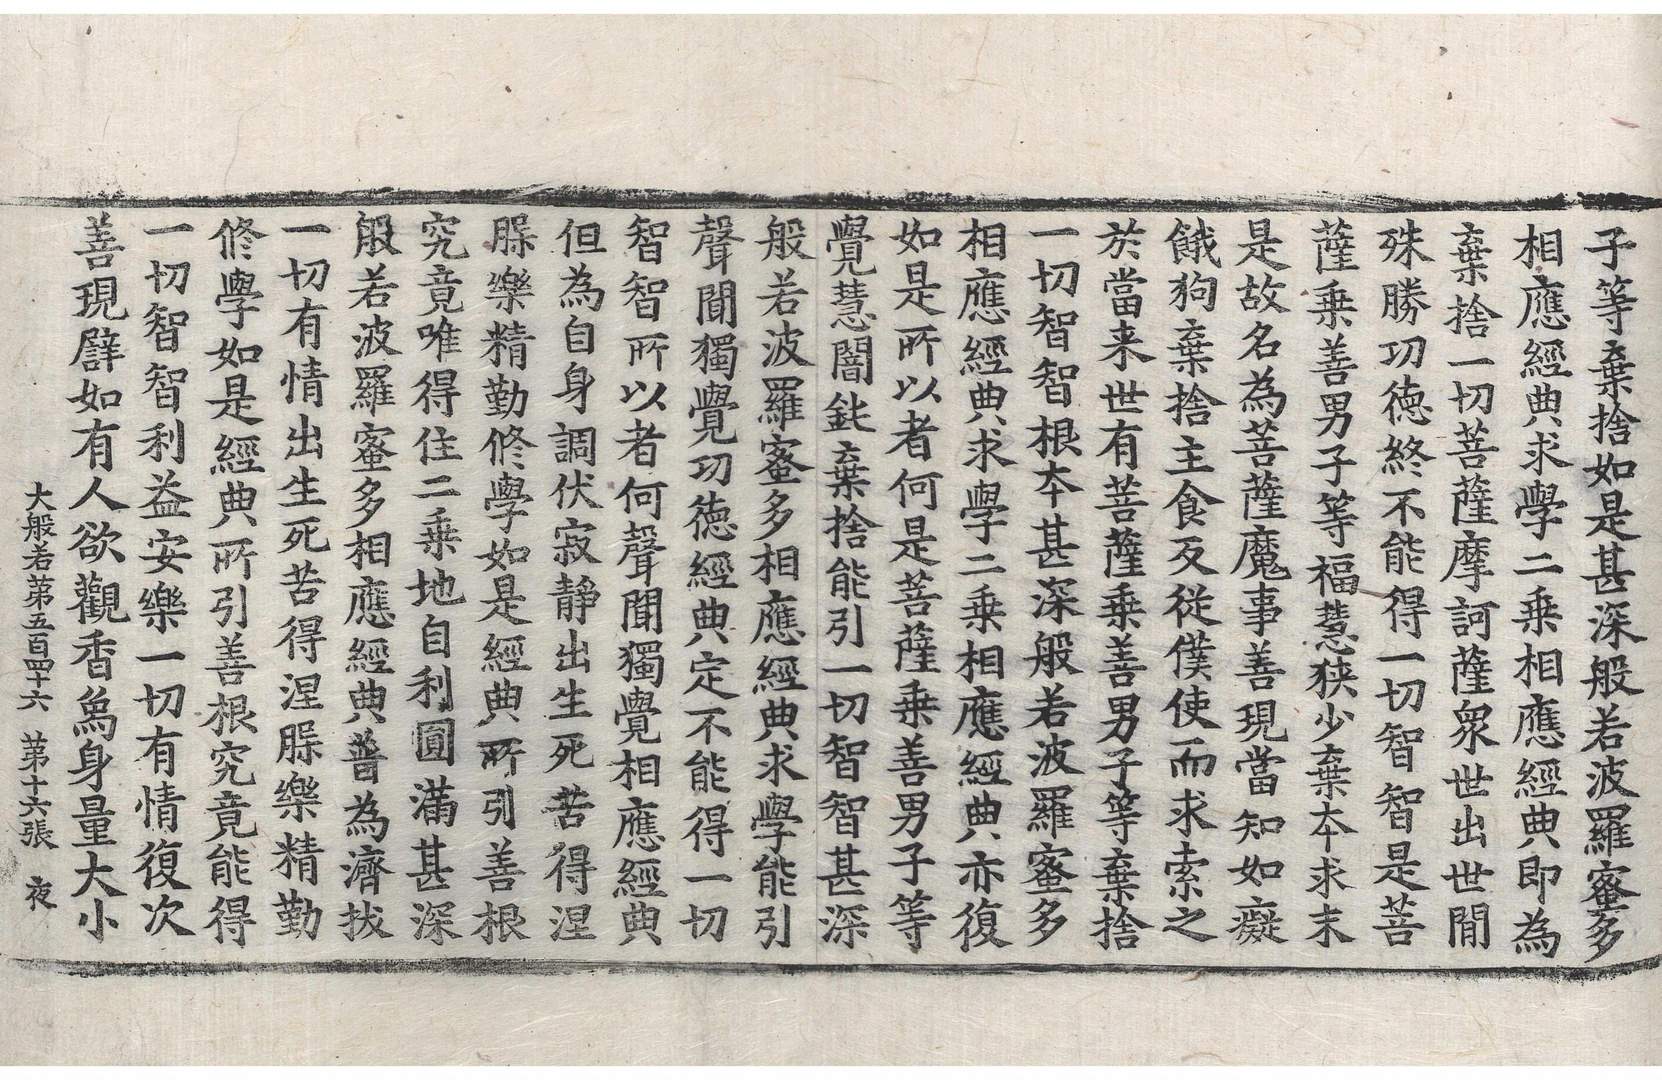 子等棄捨如是甚深般若波羅蜜多
相應經典求學二乘相應經典即為
棄捨一切菩薩摩訶薩衆世出世間
殊勝功德終不能得一切智智是菩
薩乗善男子等福慧狹少棄本求末
是故名為菩薩魔事善現當知如癡
餓狗棄捨主食反從僕使而求索之
於當来世有菩薩乗善男子等棄捨
一切智智根本甚深般若波羅蜜多
相應經典求學二乗相應經典亦復
如是所以者何是菩薩乗善男子等
覺慧闇鈍棄捨能引一切智智甚深
般若波羅蜜多相應經典求學能引
聲聞獨覺功德經典定不能得一切
智智所以者何聲聞獨覺相應經典
但為自身調伏寂靜出生死苦得涅
槃樂精勤修學如是經典所引善根
究竟唯得住二乗地自利圓滿甚深
般若波羅蜜多相應經典普為濟拔
一切有情出生死苦得涅槃樂精勤
修學如是經典所引善根究竟能得
一切智智利益安樂一切有情復次
善現譬如有人欲觀香象身量大小
大般若第五百四十六　第十六張　夜